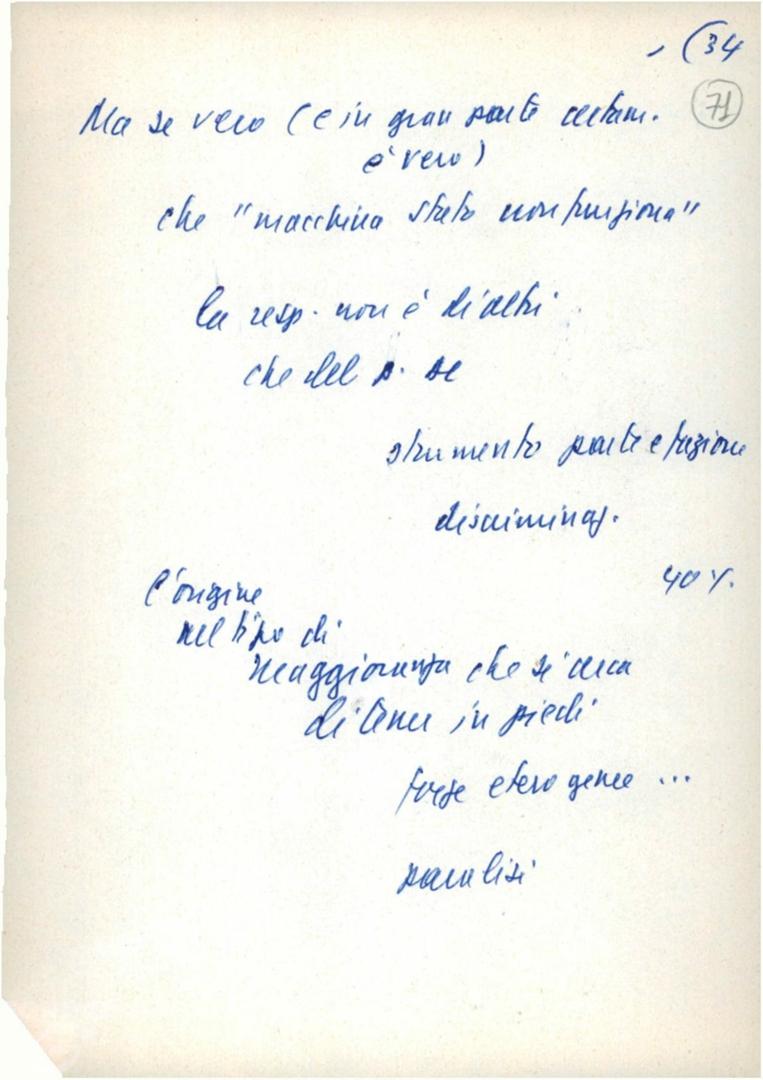 (34
71
Ma se vero (e in gran parte certam.
è vero)
che "macchina stato non funziona"
la resp. non è di altri
che del
strumento parte e fazione
discriminaz.
40%
l'origine
nel tipo di
maggioranza che si cerca
di tener in piedi
forze eterogenee ...
paralisi